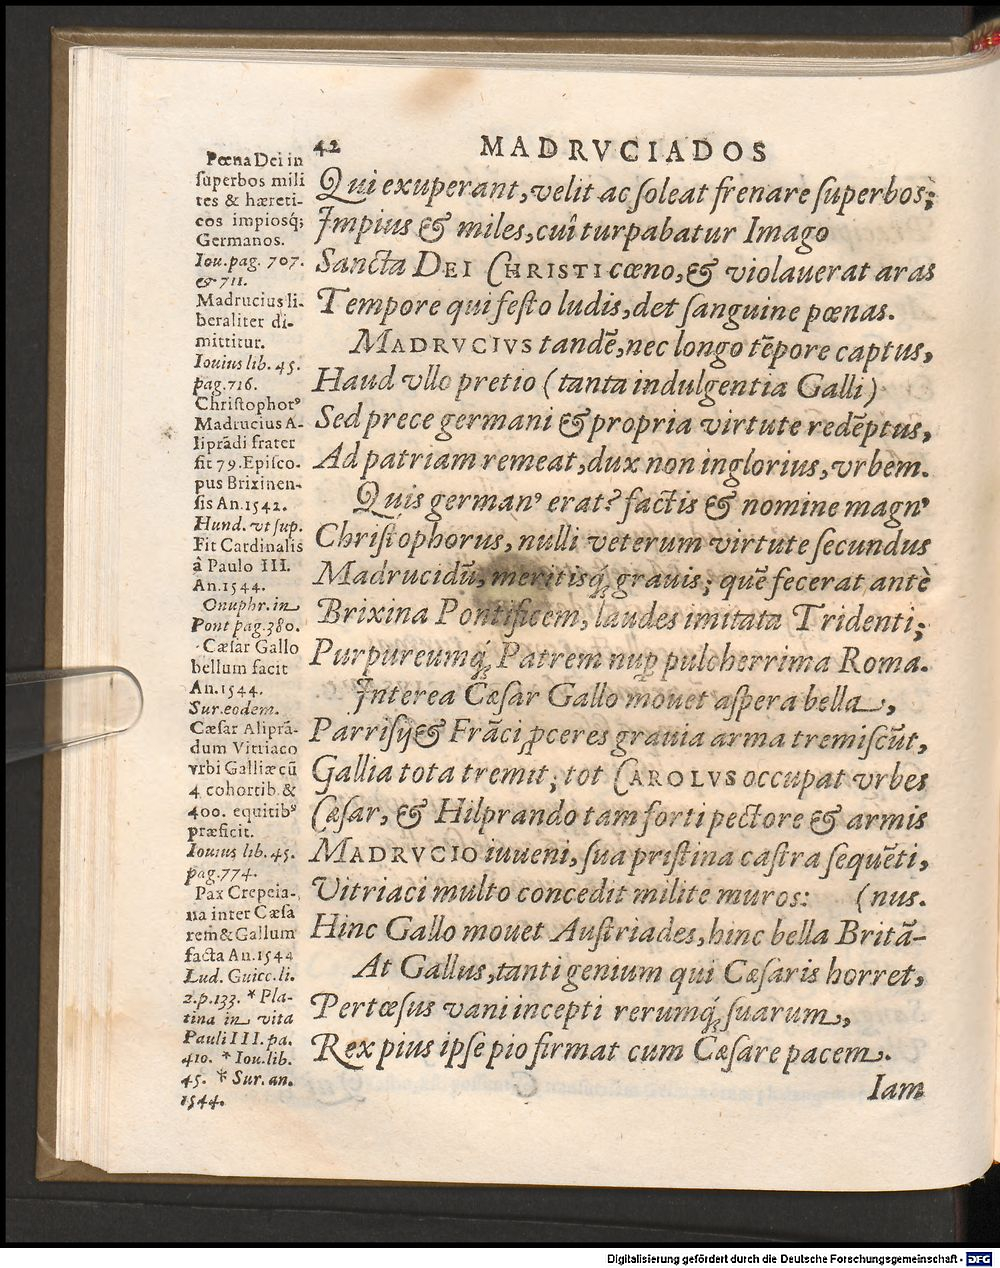 42
MADRVCIADOS
Pœna Dei in
superbos mili
tes & hæreti-
cos impiosq́;
Germanos.
Iou. pag. 707.
& 711.
Madrucius li-
beraliter di-
mittitur.
Iouius lib. 45.
pag. 716.
Christophorꝰ
Madrucius A-
liprādi frater
fit 79. Episco-
pus Brixinen-
sis An. 1542.
Hund. vt sup.
Fit Cardinalis
â Paulo III.
An. 1544.
Onuphr. in
Pont pag. 380.
Cæsar Gallo
bellum facit
An. 1544.
Sur. eodem.
Cæsar Aliprā-
dum Vitriaco
vrbi Galliæ cū
4 cohortib. &
400. equitibꝰ
præficit.
Iouius lib. 45.
pag. 774.
Pax Crepeia-
na inter Cæsa
rem & Gallum
facta An. 1544
Lud. Guicc. li.
2. p. 133. * Pla-
tina in vita
Pauli III. pa.
410. * Iou. lib.
45. * Sur. an.
1544.
Qui exuperant, velit ac soleat frenare superbos;
Impius & miles, cuî turpabatur Imago
Sancta DEI CHRISTI cœno, & violauerat aras
Tempore qui festo ludis, det sanguine pœnas.
MADRVCIVS tandē, nec longo tēpore captus,
Haud vllo pretio (tanta indulgentia Galli)
Sed prece germani & propria virtute redēptus,
Ad patriam remeat, dux non inglorius, vrbem.
Quis germanꝰ erat? factis & nomine magnꝰ
Christophorus, nulli veterum virtute secundus
Madrucidū, meritisq́; grauis; quē fecerat antè
Brixina Pontificem, laudes imitata Tridenti;
Purpureumq́; Patrem nuꝑ pulcherrima Roma.
Interea Cæsar Gallo mouet aspera bella,
Parrisij & Frāci ꝓceres grauia arma tremiscūt,
Gallia tota tremit; tot CAROLVS occupat vrbes
Cæsar, & Hilprando tam forti pectore & armis
MADRVCIO iuueni, sua pristina castra sequēti,
Vitriaci multo concedit milite muros: (nus.
Hinc Gallo mouet Austriades, hinc bella Britā-
At Gallus, tanti genium qui Cæsaris horret,
Pertæsus vani incepti rerumq́; suarum,
Rex pius ipse pio firmat cum Cæsare pacem.
Iam
Digitalisierung gefördert durch die Deutsche Forschungsgemeinschaft - DFG